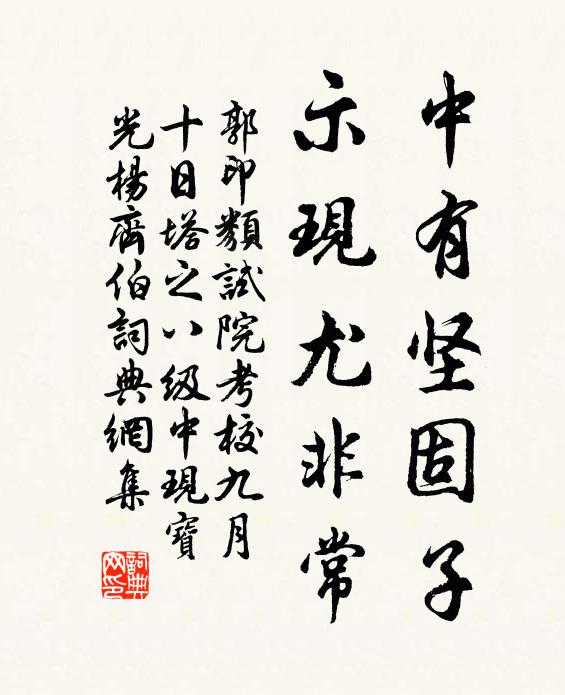 中有坚固子
示現尤非常
郭印類試院考校九月
十日塔之八级中現寳
光楊齊伯詞典網集
詞典
网印